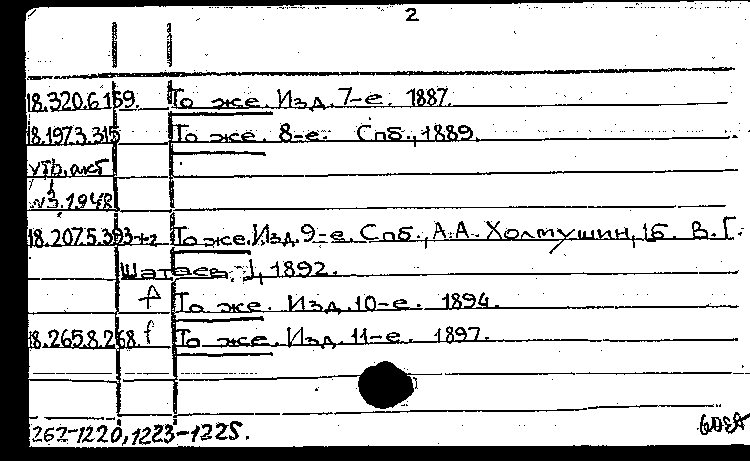 2
18.320.6.159. То же. Изд. 7-е. 1887.
18.197.3.315 То же. 8-е. Спб., 1889.
утр. акт
№3. 1948
18.207.5.393 То же. Изд. 9-е. Спб., А.А. Холмушин, [б. В.Г.
Шатаев.], 1892.
f То же. Изд. 10-е. 1894.
18.265.8.268. f То же. Изд. 11-е. 1897.
262-1220, 1223-1225.